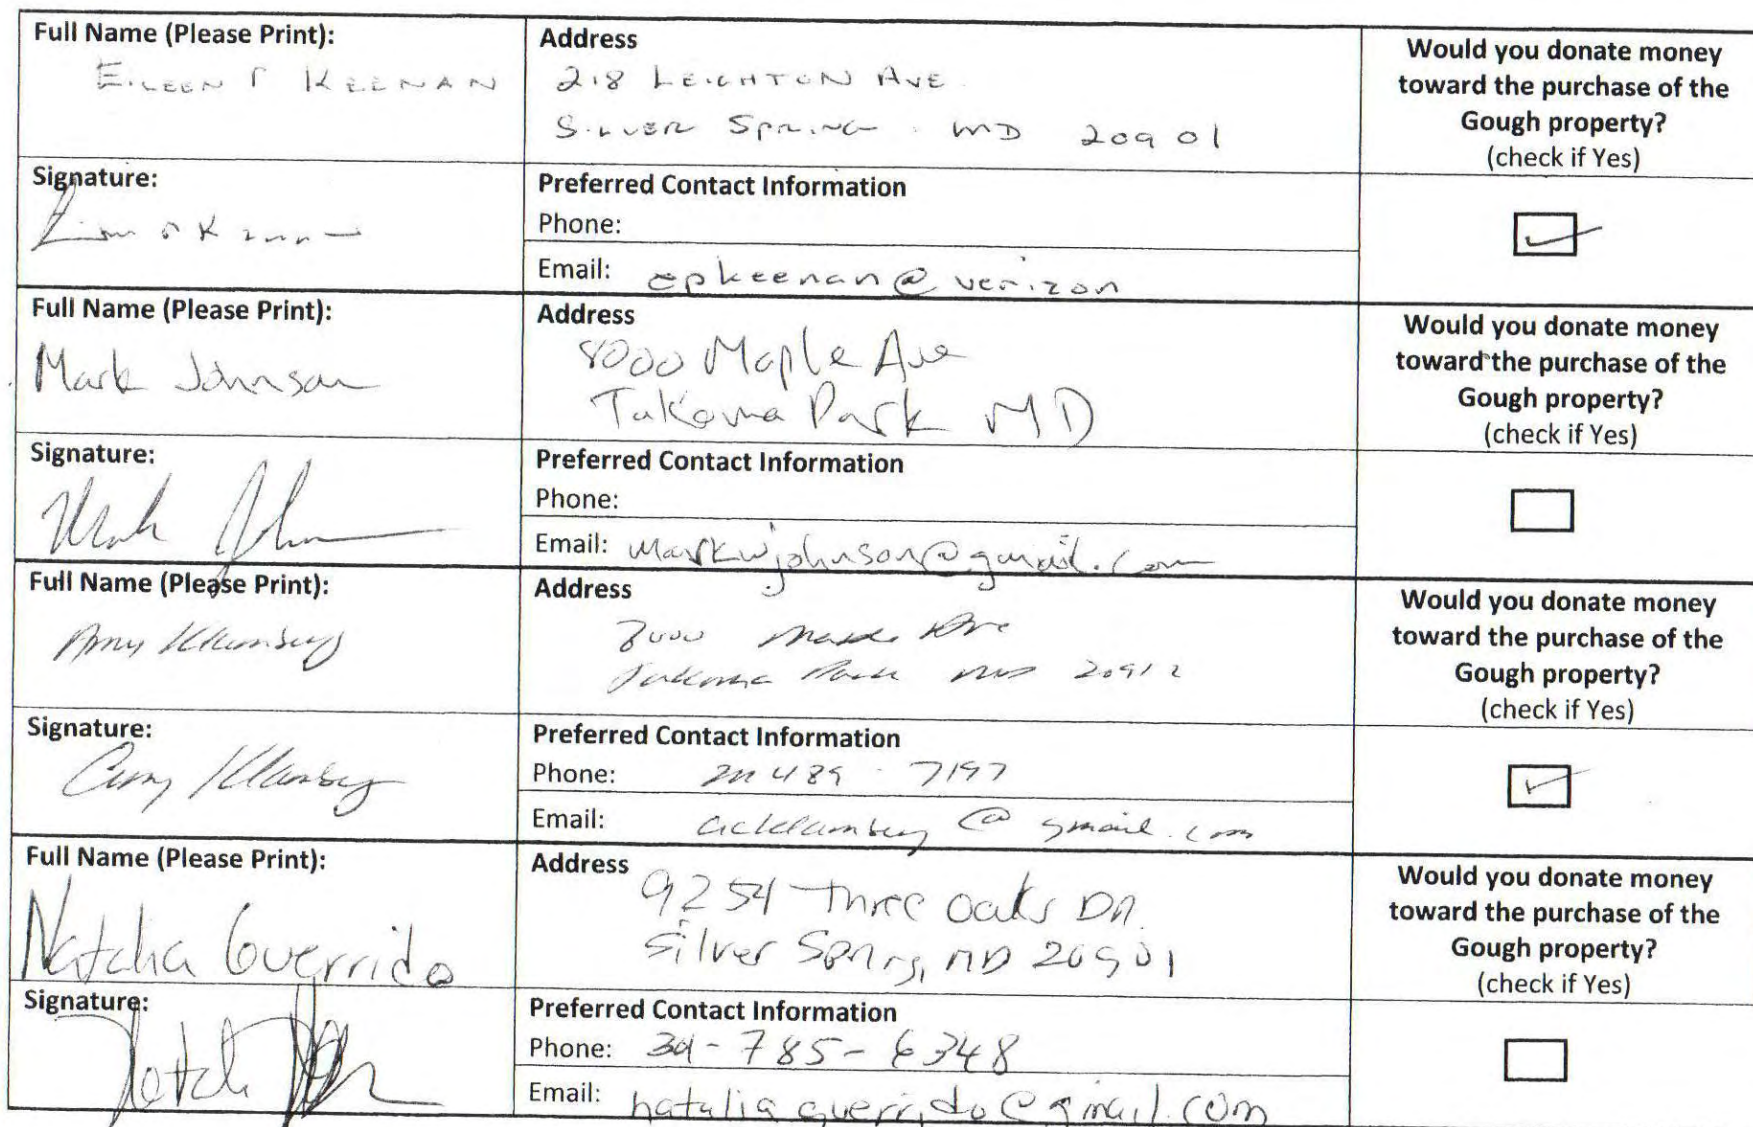 Full Name (Please Print):
EILEEN P KEENAN
Address
218 LEIGHTON AVE.
SILVER SPRING MD 20901
Would you donate money
toward the purchase of the
Gough property?
(check if Yes)
Signature:
Preferred Contact Information
Phone:
Email: epkeenan@verizon
Full Name (Please Print):
Mark Johnson
Address
8000 Maple Ave
Takoma Park MD
Would you donate money
toward the purchase of the
Gough property?
(check if Yes)
Signature:
Mark
Preferred Contact Information
Phone:
Email: markwjohnson@gmail.com
Full Name (Please Print):
Amy
Address
8000 Maple Ave
Takoma Park MD 20912
Would you donate money
toward the purchase of the
Gough property?
(check if Yes)
Signature:
Amy
Preferred Contact Information
Phone: 489-7197
Email: @gmail.com
Full Name (Please Print):
Natalia Guerrido
Address
9254 Three Oaks DR.
Silver Spring, MD 20901
Would you donate money
toward the purchase of the
Gough property?
(check if Yes)
Signature:
Preferred Contact Information
Phone: 301-785-6348
Email: nataliaguerrido@gmail.com